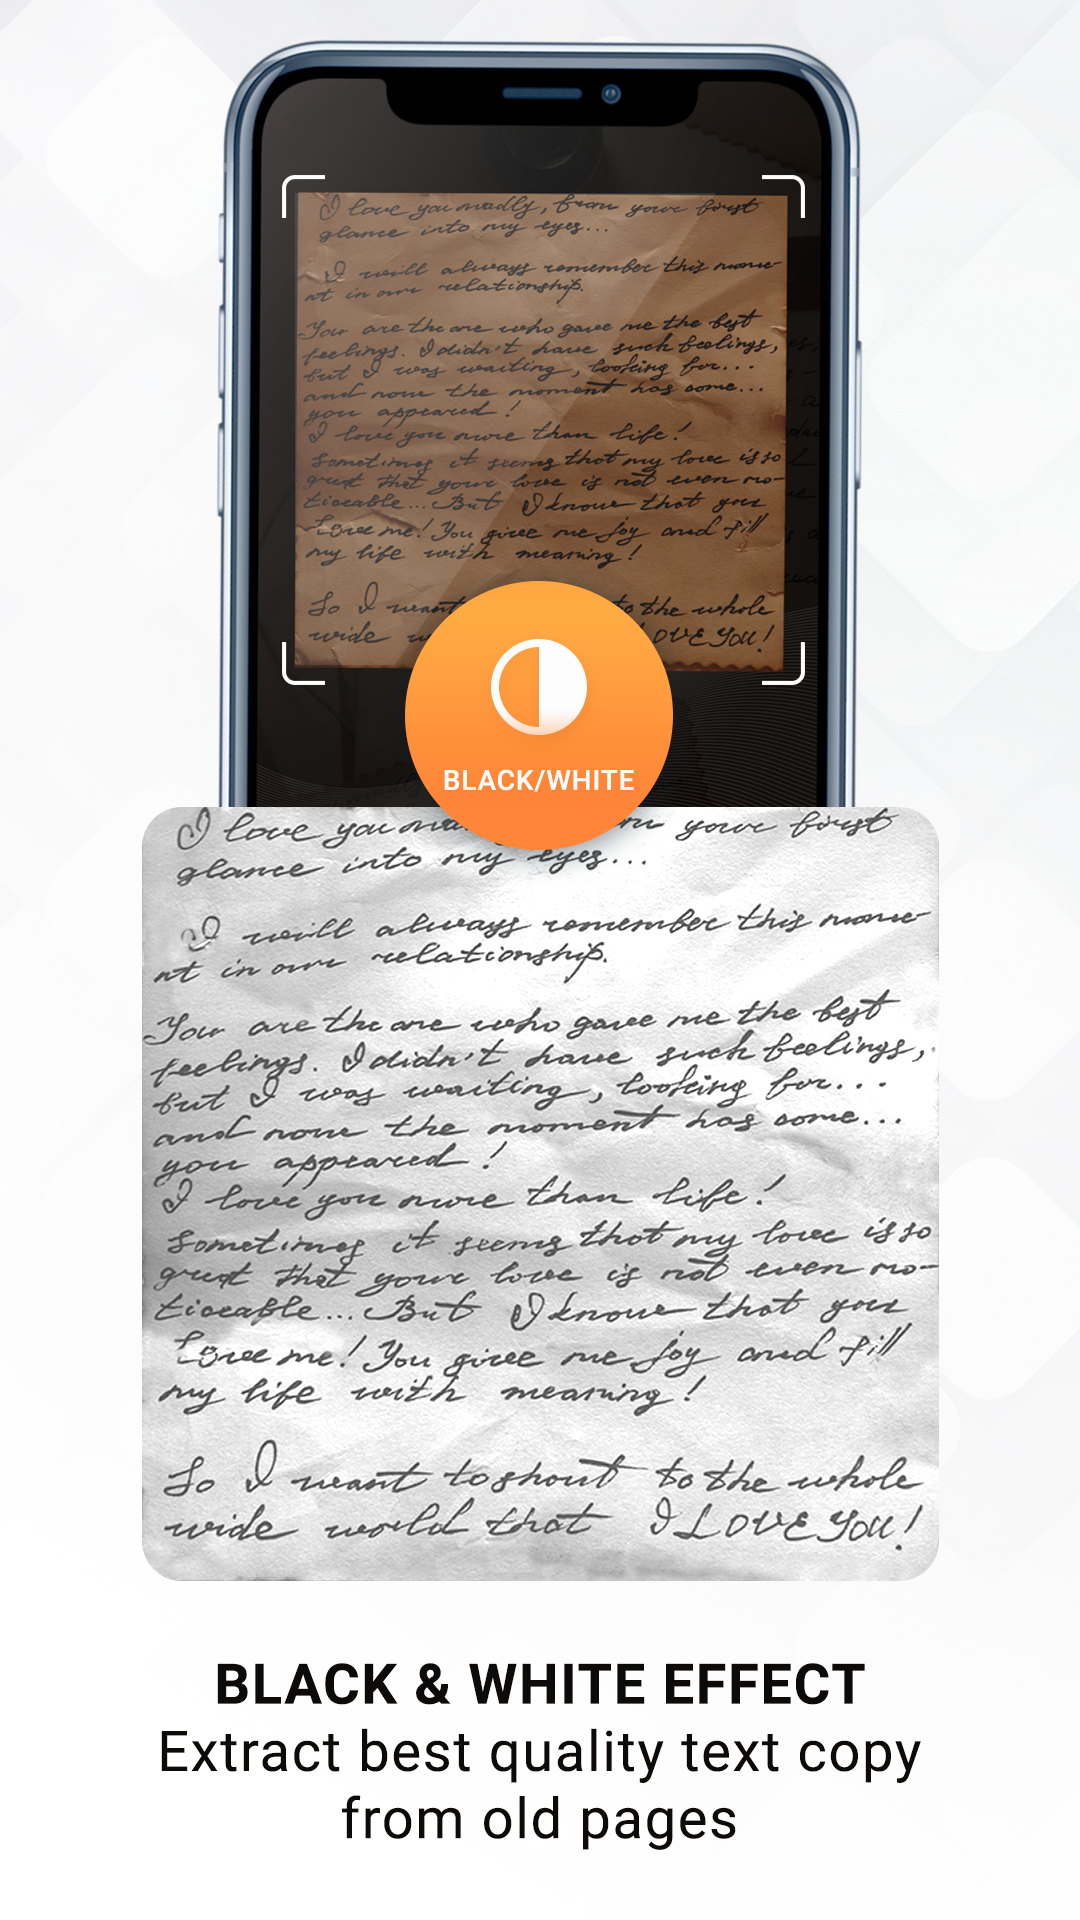 I love you madly, from your first
glance into my eyes...
I will always remember this mome-
nt in our relationship.
You are the one who gave me the best
feelings. I didn't have such feelings,
but I was waiting, looking for...
and now the moment has come...
you appeared!
I love you more than life!
Sometimes it seems that my love is so
great that your love is not even no-
ticeable... But I know that you
Love me! You give me joy and fill
my life with meaning!
So I want to the whole
wide w LOVE YOU!
BLACK/WHITE
I love you ma your first
glance into my eyes...
I will always remember this mome-
nt in our relationship.
You are the one who gave me the best
feelings. I didn't have such feelings,
but I was waiting, looking for...
and now the moment has come...
you appeared!
I love you more than life!
Sometimes it seems that my love is so
great that your love is not even no-
ticeable... But I know that you
Love me! You give me joy and fill
my life with meaning!
So I want to shout to the whole
wide world that I LOVE YOU!
BLACK & WHITE EFFECT
Extract best quality text copy
from old pages